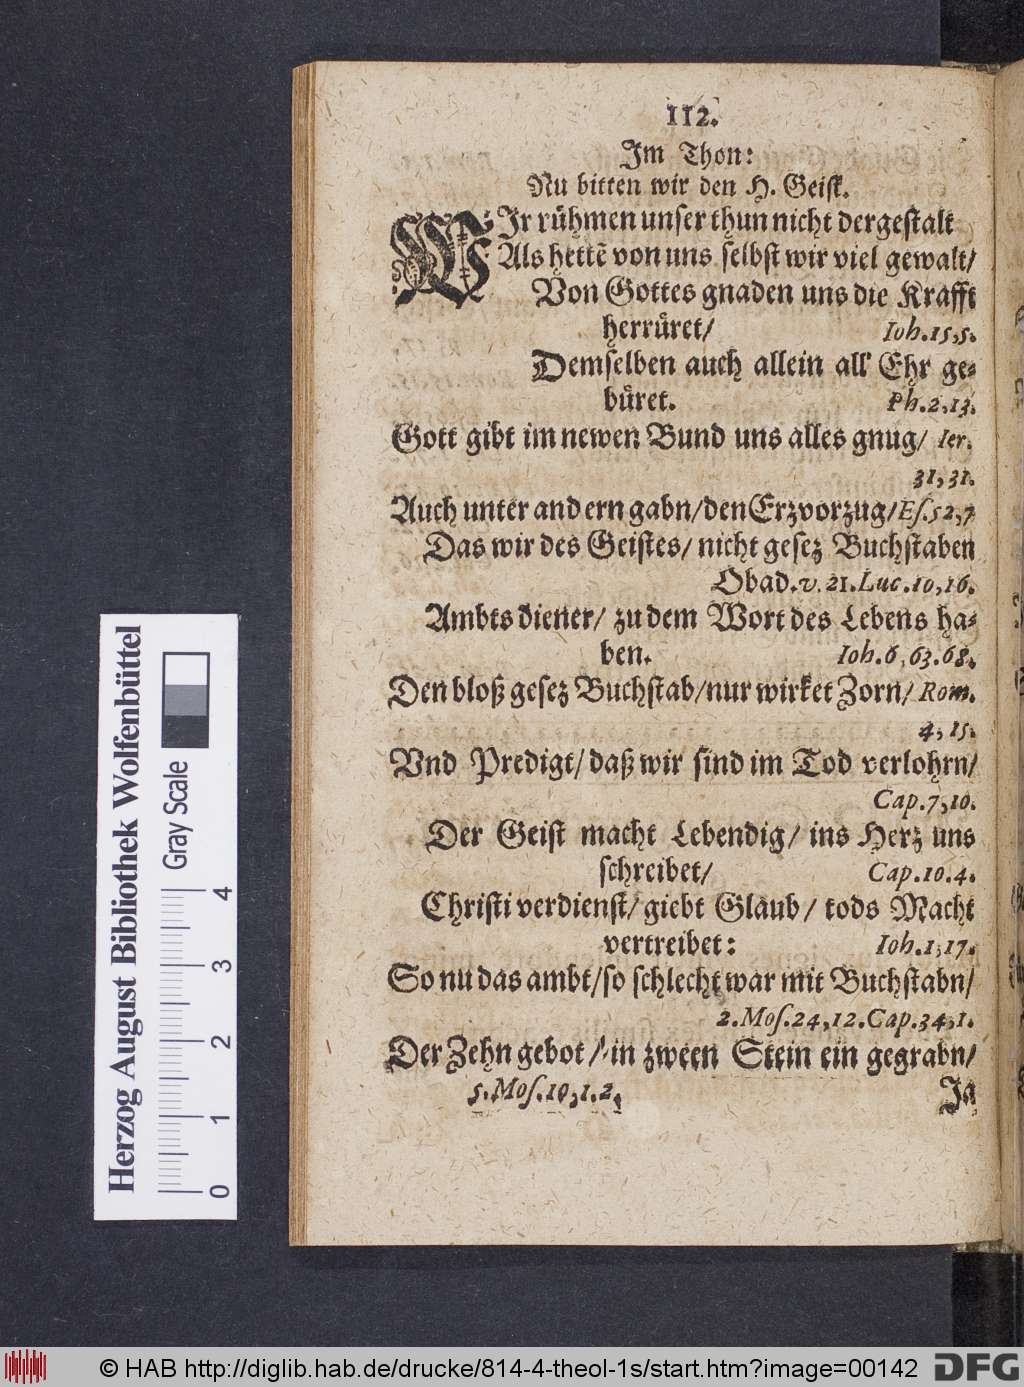 112.
Im Thon:
Nu bitten wir den H. Geist.
WIr rühmen unser thun nicht dergestalt
Als hettē von uns selbst wir viel gewalt/
Von Gottes gnaden uns die Krafft
herrüret/ Ioh.15,5.
Demselben auch allein all' Ehr ge-
büret. Ph.2,13.
Gott gibt im newen Bund uns alles gnug/ Ier.
31,31.
Auch unter andern gabn/den Erzvorzug/Es.52,7
Das wir des Geistes/ nicht gesez Buchstaben
Obad.v.21.Luc.10,16.
Ambts diener/ zu dem Wort des Lebens ha-
ben. Ioh.6,63.68.
Den bloß gesez Buchstab/nur wirket Zorn/ Rom.
4,15.
Vnd Predigt/daß wir sind im Tod verlohrn/
Cap.7,10.
Der Geist macht Lebendig/ ins Herz uns
schreibet/ Cap.10.4.
Christi verdienst/giebt Glaub/ tods Macht
vertreibet: Ioh.1,17.
So nu das ambt/so schlecht war mit Buchstabn/
2.Mos.24,12.Cap.34,1.
Der Zehn gebot/ in zween Stein ein gegrabn/
5.Mos.10,1.2.
Ja
Herzog August Bibliothek Wolfenbüttel
Gray Scale
0 1 2 3 4
© HAB http://diglib.hab.de/drucke/814-4-theol-1s/start.htm?image=00142
DFG